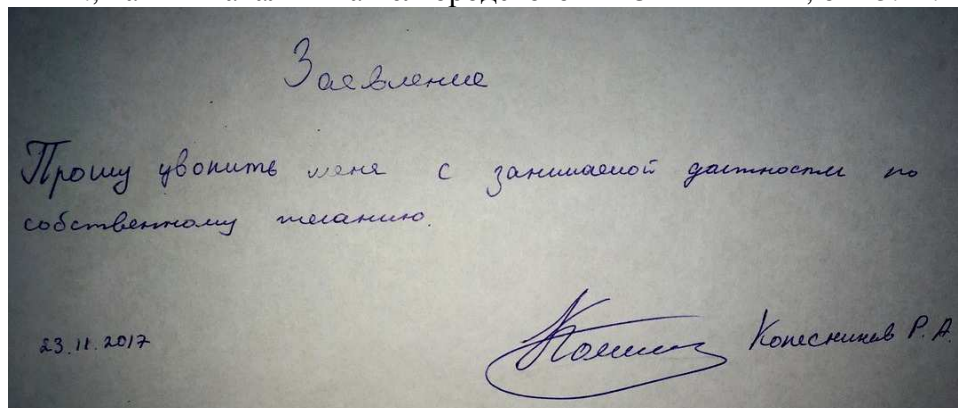 Заявление
Прошу уволить меня с занимаемой должности по
собственному желанию.
23.11.2017
Колесников Р.А.